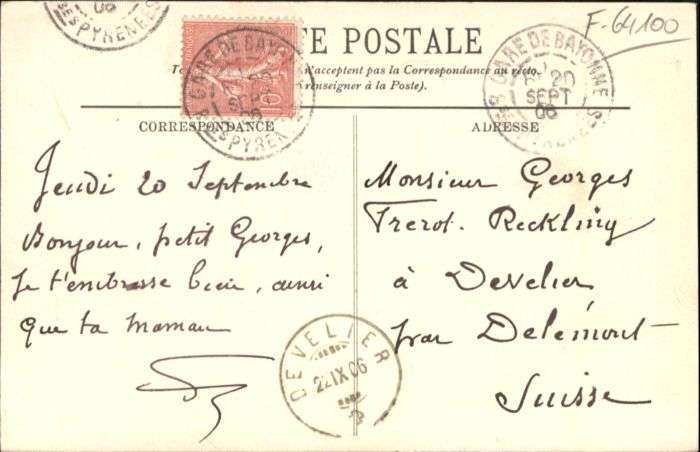 F-64100
06
SES PYRENEES
CARTE POSTALE
n'acceptent pas la Correspondance au recto
(renseigner à la Poste).
GARE DE BAYONNE
20
SEPT
06
GARE DE BAYONNE
SEPT
06
SES PYRENEES
10
CORRESPONDANCE
Jeudi 20 Septembre
Bonjour, petit Georges,
Je t'embrasse bien, ainsi
que ta Maman
ADRESSE
Monsieur Georges
Frerot. Reckling
à Develier
par Delémont
Suisse
DEVELIER
22 IX 06